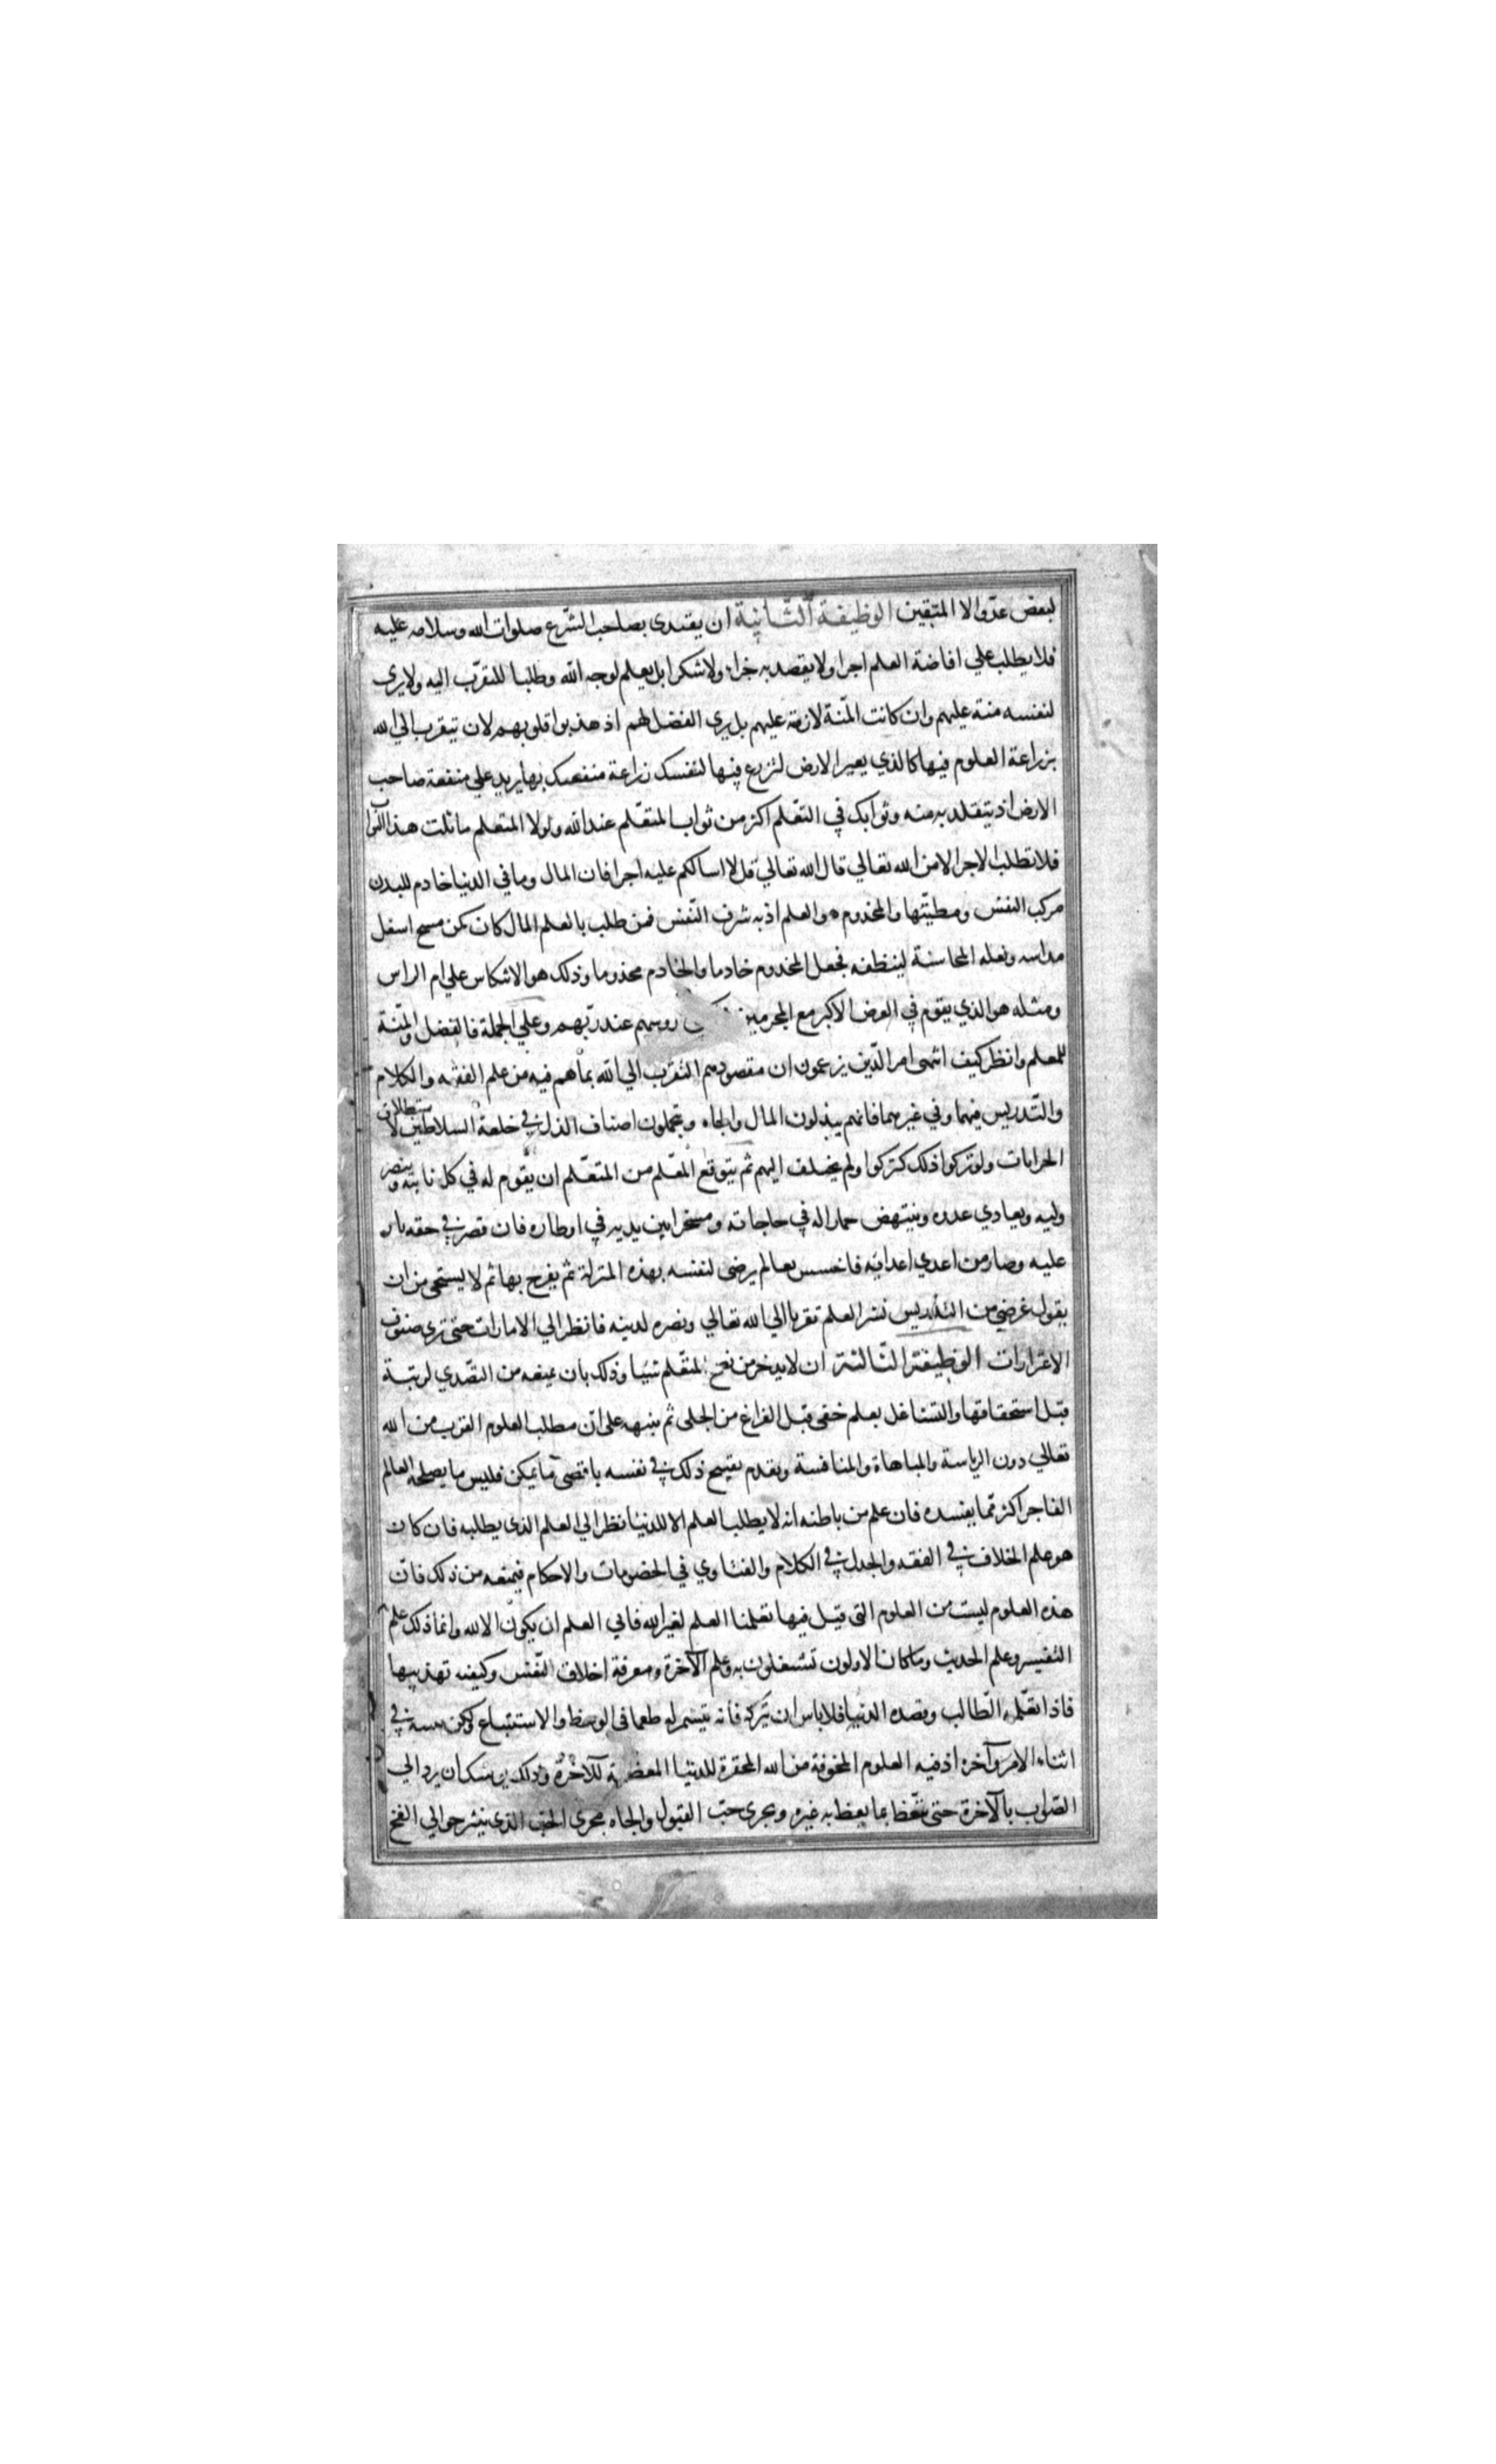 لبعض عدوّ الا المتقين الوظيفة الثّانية ان يقتدى بصاحب الشّرع صلوات الله وسلامه عليه
فلا يطلب علي افاضة العلم اجرا ولا يقصد به جزاء ولا شكرا بل يعلم لوجه الله وطلبا للتقرّب اليه ولا يرى
لنفسه منة عليهم وان كانت المنّة لازمة عليهم بل يرى الفضل لهم اذ هذبوا قلوبهم لان تتقرب الي الله
بزراعة العلوم فيها كالذي يعير الارض لتزرع فيها لنفسك زراعة منفعتك بها يزيد علي منفعة صاحب
الارض اذ يتقلد به منه وثوابك في التعّلم اكثر من ثواب المتعّلم عند الله ولولا المتعلم ما نلت هذا الثواب
فلا تطلب الاجر الا من الله تعالي قال الله تعالي قل لا اسالكم عليه اجرا فان المال وما في الدنيا خادم للبدن
مركب النفس ومطيّتها والمخدوم هو العلم اذ به شرف النّفس فمن طلب بالعلم المال كان كمن مسح اسفل
مداسه ونعله المحاسنة لينظفه فجعل المخدوم خادما والخادم مخدوما وذلك هو الاشكاس علي ام الراس
ومثله هو الذي يقوم في العرض الاكبر مع المجرمين روسهم عند ربّهم وعلي الجملة فالفضل والمنّة
للمعلم وانظر كيف انتهى امر الّدين يزعمون ان مقصودهم التقرب الي الله بما هم فيه من علم الفقه والكلام
والتّدريس فيهما وفي غيرهما فانهم يبذلون المال والجاه ويتحملون اصناف الذل في خلعة السلاطين لاستطلاق
الجرايات ولو تركوا ذلك لتركوا ولم يختلف اليهم ثم يتوقع المعّلم من المتعّلم ان يقوم له في كل نايبة وينصر
وليه ويعادي عدوه وينتهض حمارا له في حاجاته ومسخرا بين يديه في اوطاره فان قصر في حقه ثار
عليه وصار من اعدي اعدائه فاخسس بعالم يرضى لنفسه بهذه المنزلة ثم يفرح بها ثم لا يستحى من ان
يقول غرضي من التدريس نشر العلم تقربا الي الله تعالي ونصره لدينه فانظر الي الامارات حتى ترى صنوف
الاغترارات الوظيفة الثالثة ان لا يدخر من نصح المتعّلم شيئا وذلك بان يمنعه من التصّدي لرتبة
قبل استحقاقها والتشاغل بعلم خفى قبل الفراغ من الجلى ثم ينبهه على ان مطلب العلوم القرب من الله
تعالي دون الرياسة والمباهاة والمنافسة ويقدم تقبيح ذلك في نفسه باقصى ما يمكن فليس ما يصلحه العالم
الفاجر اكثر مّما يفسده فان علم من باطنه انه لا يطلب العلم الا للدنيا نظر الي العلم الذى يطلبه فان كان
هو علم الخلاف في الفقه والجدل في الكلام والفتاوي في الخصومات والاحكام فيمنعه من ذلك فانّ
هذه العلوم ليست من العلوم التى قيل فيها تعلمنا العلم لغير الله فابي العلم ان يكون الا لله وانما ذلك علم
التفسير وعلم الحديث وما كان الاولون تشتغلون به وعلم الآخرة ومعرفة اخلاق النّفس وكيفية تهذيبها
فاذا تعّلمه الّطالب وقصده الدنيا فلا باس ان يتركه فانه يتشمر له طمعا فى الوعظ والاستتباع ولكن في
اثناء الامر وآخره اذ فيه العلوم المخوفة من الله المحقرة للدنيا المعظمة للآخرة وذلك يوشك ان يرد الي
الصّواب بالآخرة حتى يتّعظ بما يعظ به غيره ويجرى حبّ القبول والجاه مجرى الحب الذى ينثر حوالي الفخ